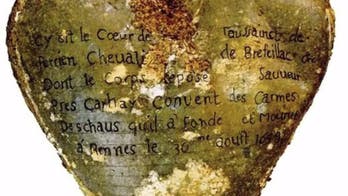 Cy sit le Coeur de Toussainct de
Perrien Chevali de Brefeillac
Dont le Corps Repose Sauveur
Pres Carhay Convent des Carmes
Deschaus quil a Fonde et Mourut
a Rennes le 30 doust